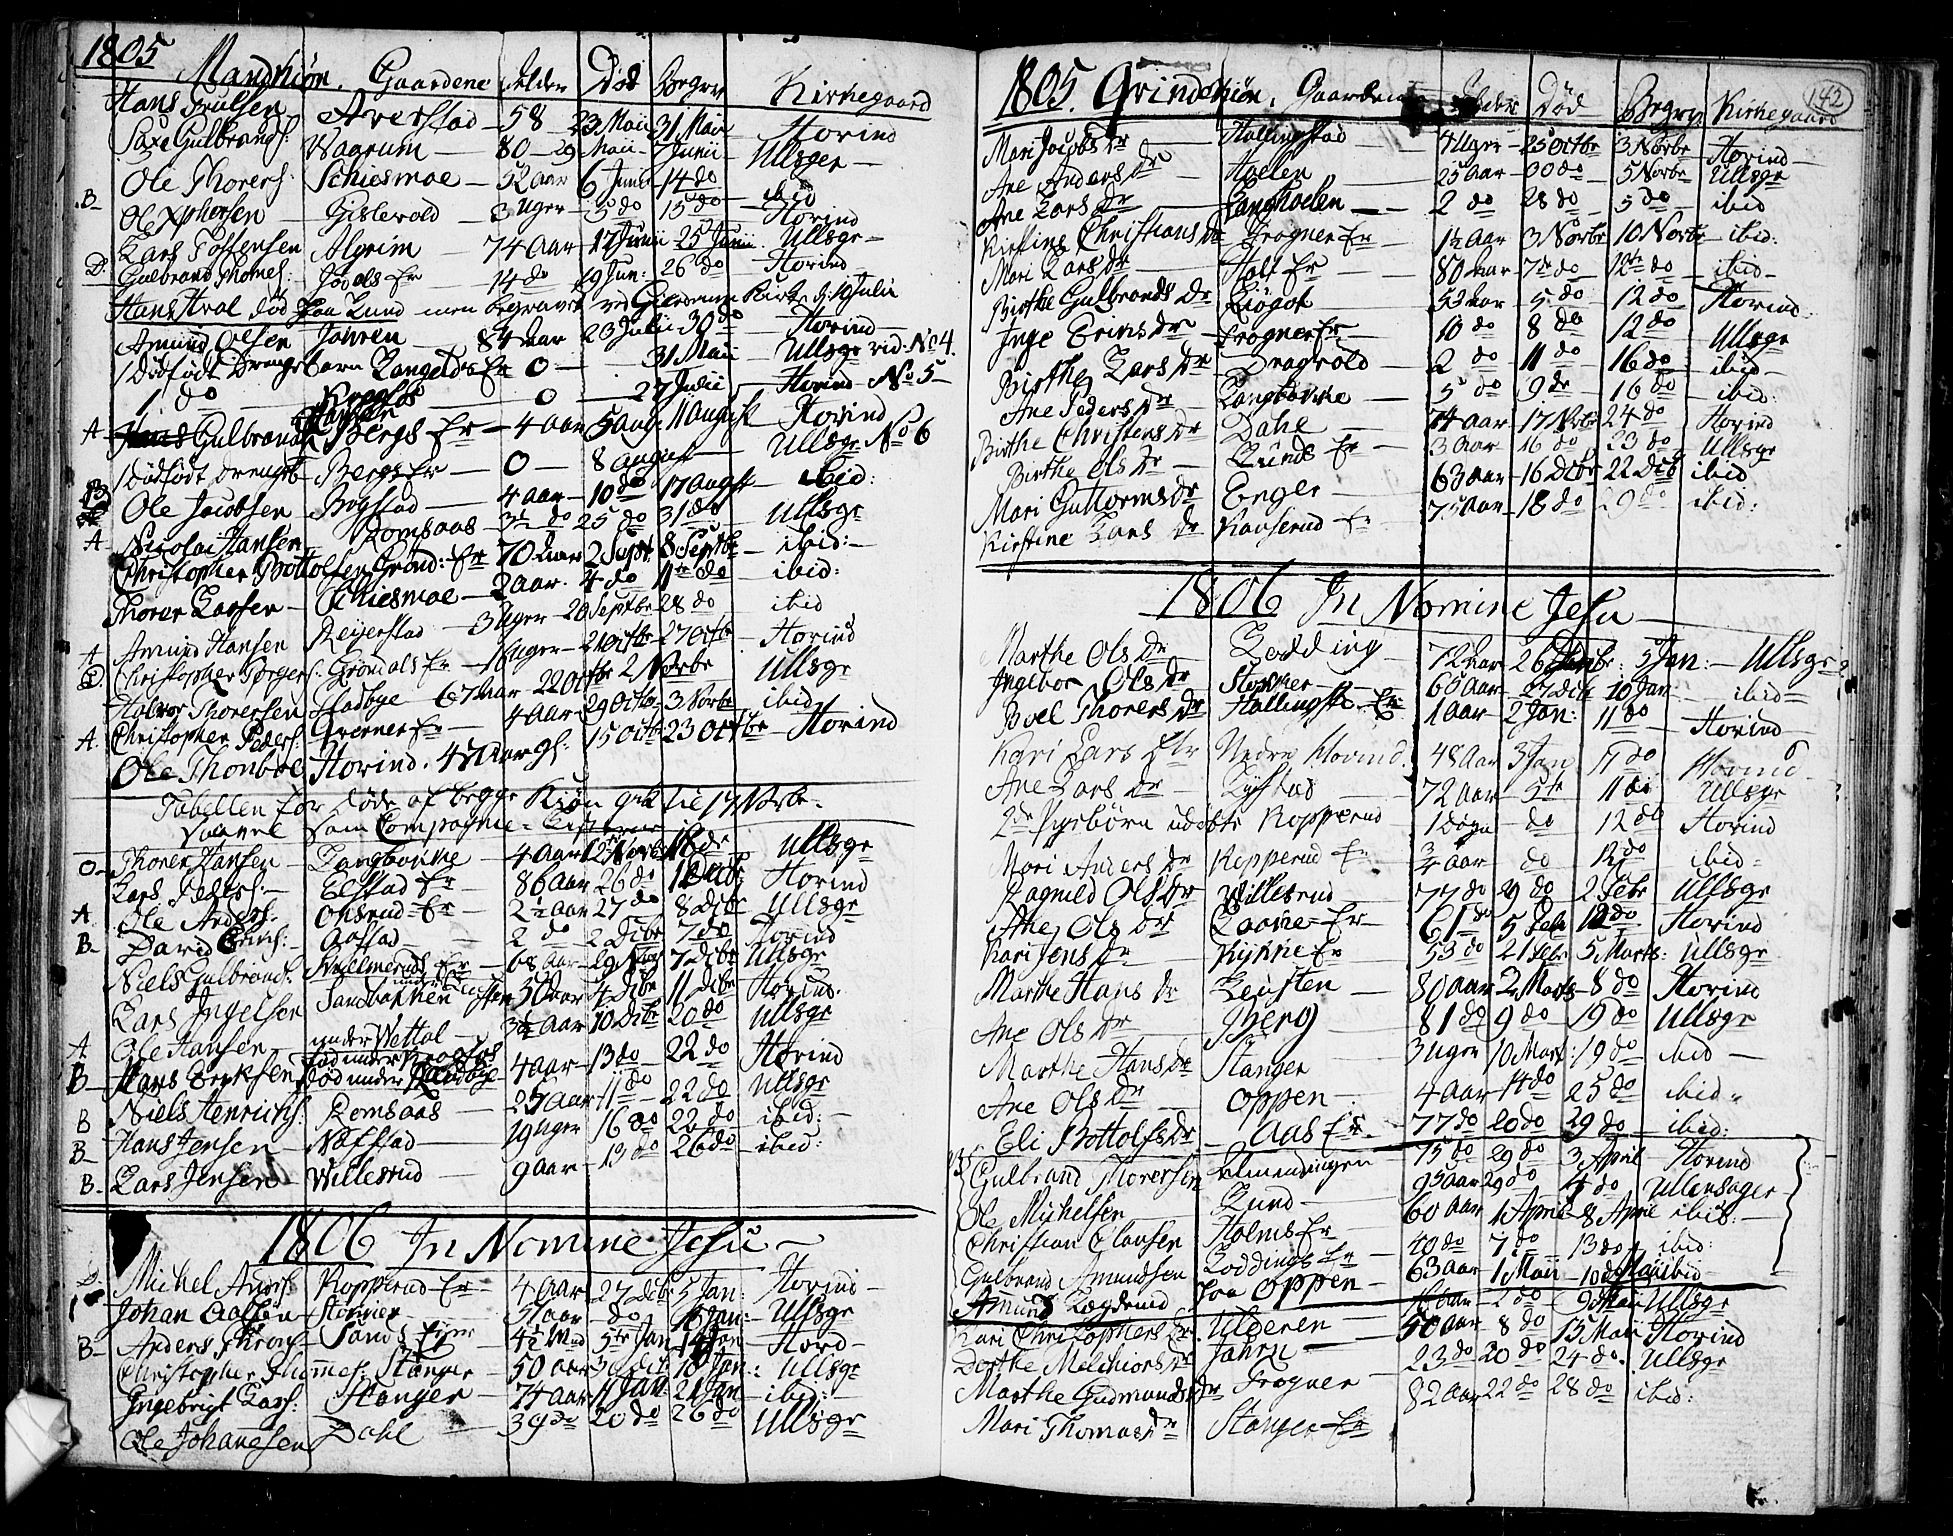 1805
Mandkiøn. Gaardene Alder Død Begrv Kirkegaard
Hans Trulsen Averstad 58 23 Maii 31 Maii Hovind
Saxe Gulbrands: Waarum 80 29 Maii 7 Junii Ullsger
Ole Thorers: Schiesmoe 52 aar 6 Junii 14 do ibid
B Ole Xphersen Gislevold 3 Uger 5 do 15 do Hovind
Lars Tostensen Algrim 74 Aar 17 Junii 25 Junii Ullsgr
D. Gulbrand Thomes: Jødals Er 14 do 19 Jun: 26 do Hovind
Hans Hval død paa Lund men begravet ved Gierdrum Kirke d: 19 Julii
Amund Olsen Jahren 84 aar 23 Julii 30 do Hovind
1 dødfødt Drengebarn Langelds Er 0 31 Maii Ullsgr vid. No 4.
1 do Kroglos 0 27 Julii Hovind No 5
A Hansen Gulbrands: Bergs Er 4 aar 5 aug: 11 August Hovind
1 dødfødt drengeb Bergs Er 0 8 August Ullsgr No 6
B Ole Jacobsen Bogstad 4 aar 10 do 17 Augst ibid:
A Nicolai Hansen Romsaas 3½ do 25 do 31 do Ullsgr
Christopher Bottolfsen Grønd: Er 70 aar 2 Septr 8 Septbr ibid:
Thorer Larsen Schiesmoe 2 aar 4 do 11te do ibid:
A Amund Hansen Reijerstad 3 Uger 20 Septbr 28 do ibid
D. Christopher Torgers: Grøndals Er 16 Uger 21 Octbr 27 Octbr Hovind
Halvor Thorersen Hadbye 67 aar 22 Octbr 2 Novbr Ullsgr
A. Christopher Peders: Qverner Er 4 aar 29 Octbr 3 Novbr ibid
Ole Thonboe Hovind 45 Aar gl: 15 Octbr 23 Octbr Hovind
Tabellen for døde af begge Kiøn gik til 17 Novbr.
Saavel som Compagnie-Listerne
O Thorer Hansen Langbakke 4 aar 12 Novbr 18 do Ullsgr
Lars Peders: Elstad Er 86 aar 26 do 1 Decbr Hovind
A. Ole Anders: Onsrud Er 2½ aar 27 do 8 Decbr Ullsgr
B. David Erichs: Aastad 2 do 2 Dcbr 7 do Hovind
Niels Gulbrands: Kulmeruds Er 68 aar 29 Nov 7 Dcbr Ullsgr
Lars Ingelsen Sandbakken under 50 aar 4 Dcbr 11 Dcbr Hovind
A Ole Hansen under Wettal 3½ aar 10 Dcbr 20 do Ullsgr
B Hans Eriksen død under Kroglos 4 aar 13 do 22 do Hovind
B Niels Henrichs: Romsaas 25 aar 11 do 22 do Ullsgr
B Hans Jensen Næsstad 19 Uger 16 do 22 do ibid:
B Lars Jensen Willesrud 9 aar 13 do 26 do ibid:
1806 In Nomine Jesu
D. Michel Anders: Kopperud Er 4 aar 27 Dcbr 5 Jan: Hovind
Johan Oolsen Stormer 51 aar do 16 Jan: Ullsgr
B Anders Thors: Sands Ejer 4½ Mnd 5te Jan 14 Jan Hovd
Christopher Thommes: Stanger 50 aar 30 Dcb 18 Jan: Ullsgr
Ingebrigt Lars: Stanger 74 aar 11 Jan 21 Jan ibid:
Ole Johanesen Dahl 39 do 20 do 26 do Ullsgr
142
1805. Qvindekiøn. Gaardene Alder Død Begrv Kirkegaard
Mari Jacobs Dr Hallingstad 4 Uger 25 Octbr 3 Novbr Hovind
Ane Anders Dr Hoelen 25 aar 30 do 5 Novbr Ullsgr
Ane Lars Dr Langhoelen 2 do 28 do 5 do ibid
Kirstine Christians Dr Frogner Er 1½ aar 3 Novbr 10 Novbr ibid:
Mari Lars Dr Holt Er 80 aar 7de do 12te do ibid
Birthe Gulbrands Dr Liøgot 53 aar 5 do 12 do Hovind
Inge Erics Dr Frogner Er 10 do 8 do 12 do Ullsgr
Birthe Lars Dr Dragvold 2 do 11 do 16 do ibid
Ane Peders Dr Langbakke 5 do 9 do 16 do ibid:
Birthe Christens Dr Dahl 74 aar 17 Nvbr 24 do Hovind
Birthe Ols Dr Lunds Er 3 aar 16 do 23 do Ullsgr
Mari Guttorms Dr Enger 63 aar 16 Dcbr 22 Dcb ibid
Kirstine Lars Dr Kauserud Er 75 aar 18 do 29 do ibid:
1806 In Nomine Jesu
Marthe Ols Dr Lodding 72 aar 26 Dcbr: 5 Jan: Ullsgr
Ingebor Ols Dr Stormer 65 aar 27 Dcb 10 Jan ibid
Boel Thorers Dr Hallingst: Er 1 aar 2 Jan: 11 do Hovind
Kari Lars Dtr Nedre Hovind 48 aar 3 Jan 11 do Hovind
Ane Lars Dr Kystad 72 aar 5te 11 do Ullsgr
2de Pigebørn udøbte Kopperud 1 døgn do 12 do Hovind
Mari Anders Dr Kopperud Er ¾ aar do 12 do ibid
Ragnild Ols Dr Willesrud 77 do 29 do 2 Febr Ullsgr
Ane Ols Dr Laane Er 61 do 5 Feb 12 do Hovind
Kari Jens Dr Rykke Er 53 do 21 Febr 5 Marts: Ullsgr
Marthe Hans Dr Leusten 80 aar 2 Marts 8 do Hovind
Ane Ols Dr Tberg 81 do 9 do 19 do Ullsgr
Marthe Hans Dr Stanger 3 Uger 10 Mart: 19 do ibid
Ane Ols Dr Oppen 4 aar 14 do 25 do ibid
Eli Bottolfs Dr Aas Er 77 do 20 do 29 do ibid:
Gulbrand Thorersen Almendingen 75 do 29 do 3 April Hovind
Ole Michelsen Lund 95 aar 29 do 4 do Ullensager
Christian Clausen Holms Er 60 aar 1 April 8 April ibid:
Gulbrand Amundsen Loddings Er 40 do 7 do 13 do ibid:
Amund Lægdsmd paa Oppen 63 aar 1 Maii 10 do Maii ibid
Kari Christophers Dr Ulderen 16 aar 2 do 9 Maii Ullsgr
Dorthe Melchiors Dr Jahrn 50 aar 8 do 15 Maii Hovind
Marthe Gudmunds Dr Frogner 23 do 20 do 24 do. Ullsgr
Mari Thomas Dr Stanger Er 82 aar 22 do 28 do ibid: